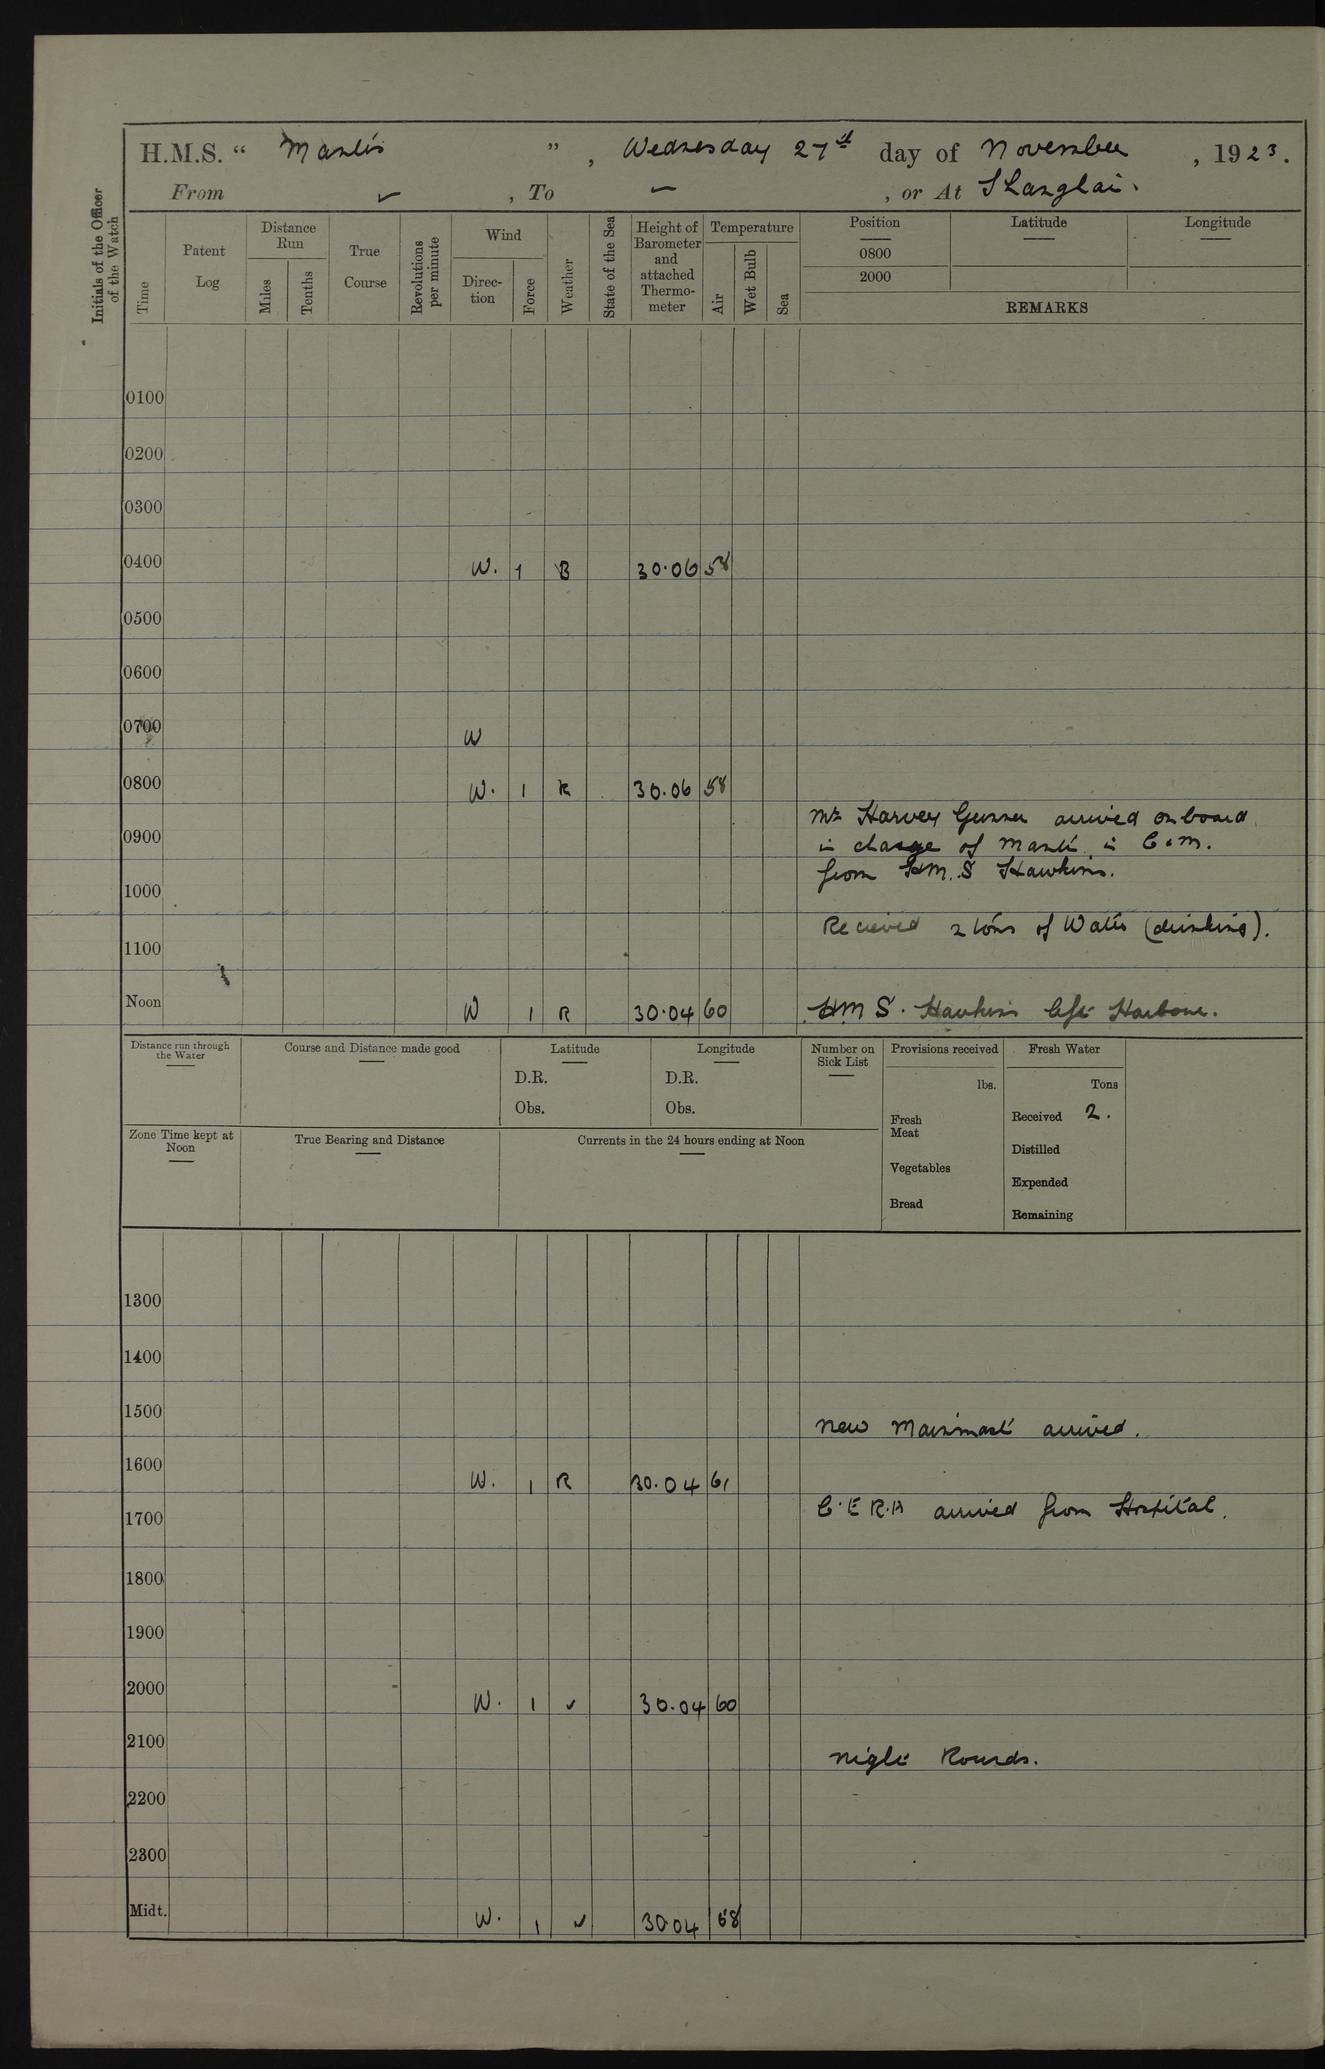 H.M.S. “ Mantis ” , Wednesday 27th day of November , 1923.
From ✓ , To – , or At Shanghai.
Initials of the Officer of the Watch
Time
Patent Log
Distance Run
Miles
Tenths
True Course
Revolutions per minute
Wind
Direction
Force
Weather
State of the Sea
Height of Barometer and attached Thermometer
Temperature
Air
Wet Bulb
Sea
Position
0800
2000
Latitude
Longitude
REMARKS
0100
0200
0300
0400 W. 1 B 30.06 58
0500
0600
0700 W
0800 W. 1 R 30.06 58
Mr Harvey Gunner arrived on board
0900
in charge of Mantis in
from H.M.S Hawkins.
1000
Recieved 2 tons of Water (drinking).
1100
Noon W 1 R 30.04 60 HMS. Hawkins left Harbour.
Distance run through the Water
Course and Distance made good
Latitude
D.R.
Obs.
Longitude
D.R.
Obs.
Number on Sick List
Provisions received
lbs.
Fresh Meat
Vegetables
Bread
Fresh Water
Tons
Received 2.
Distilled
Expended
Remaining
Zone Time kept at Noon
True Bearing and Distance
Currents in the 24 hours ending at Noon
1300
1400
1500 New Mainmast arrived.
1600 W. 1 R 30.04 61
C.E.R.A arrived from Hospital.
1700
1800
1900
2000 W. 1 ✓ 30.04 60
2100 Night Rounds.
2200
2300
Midt. W. 1 ✓ 30.04 58